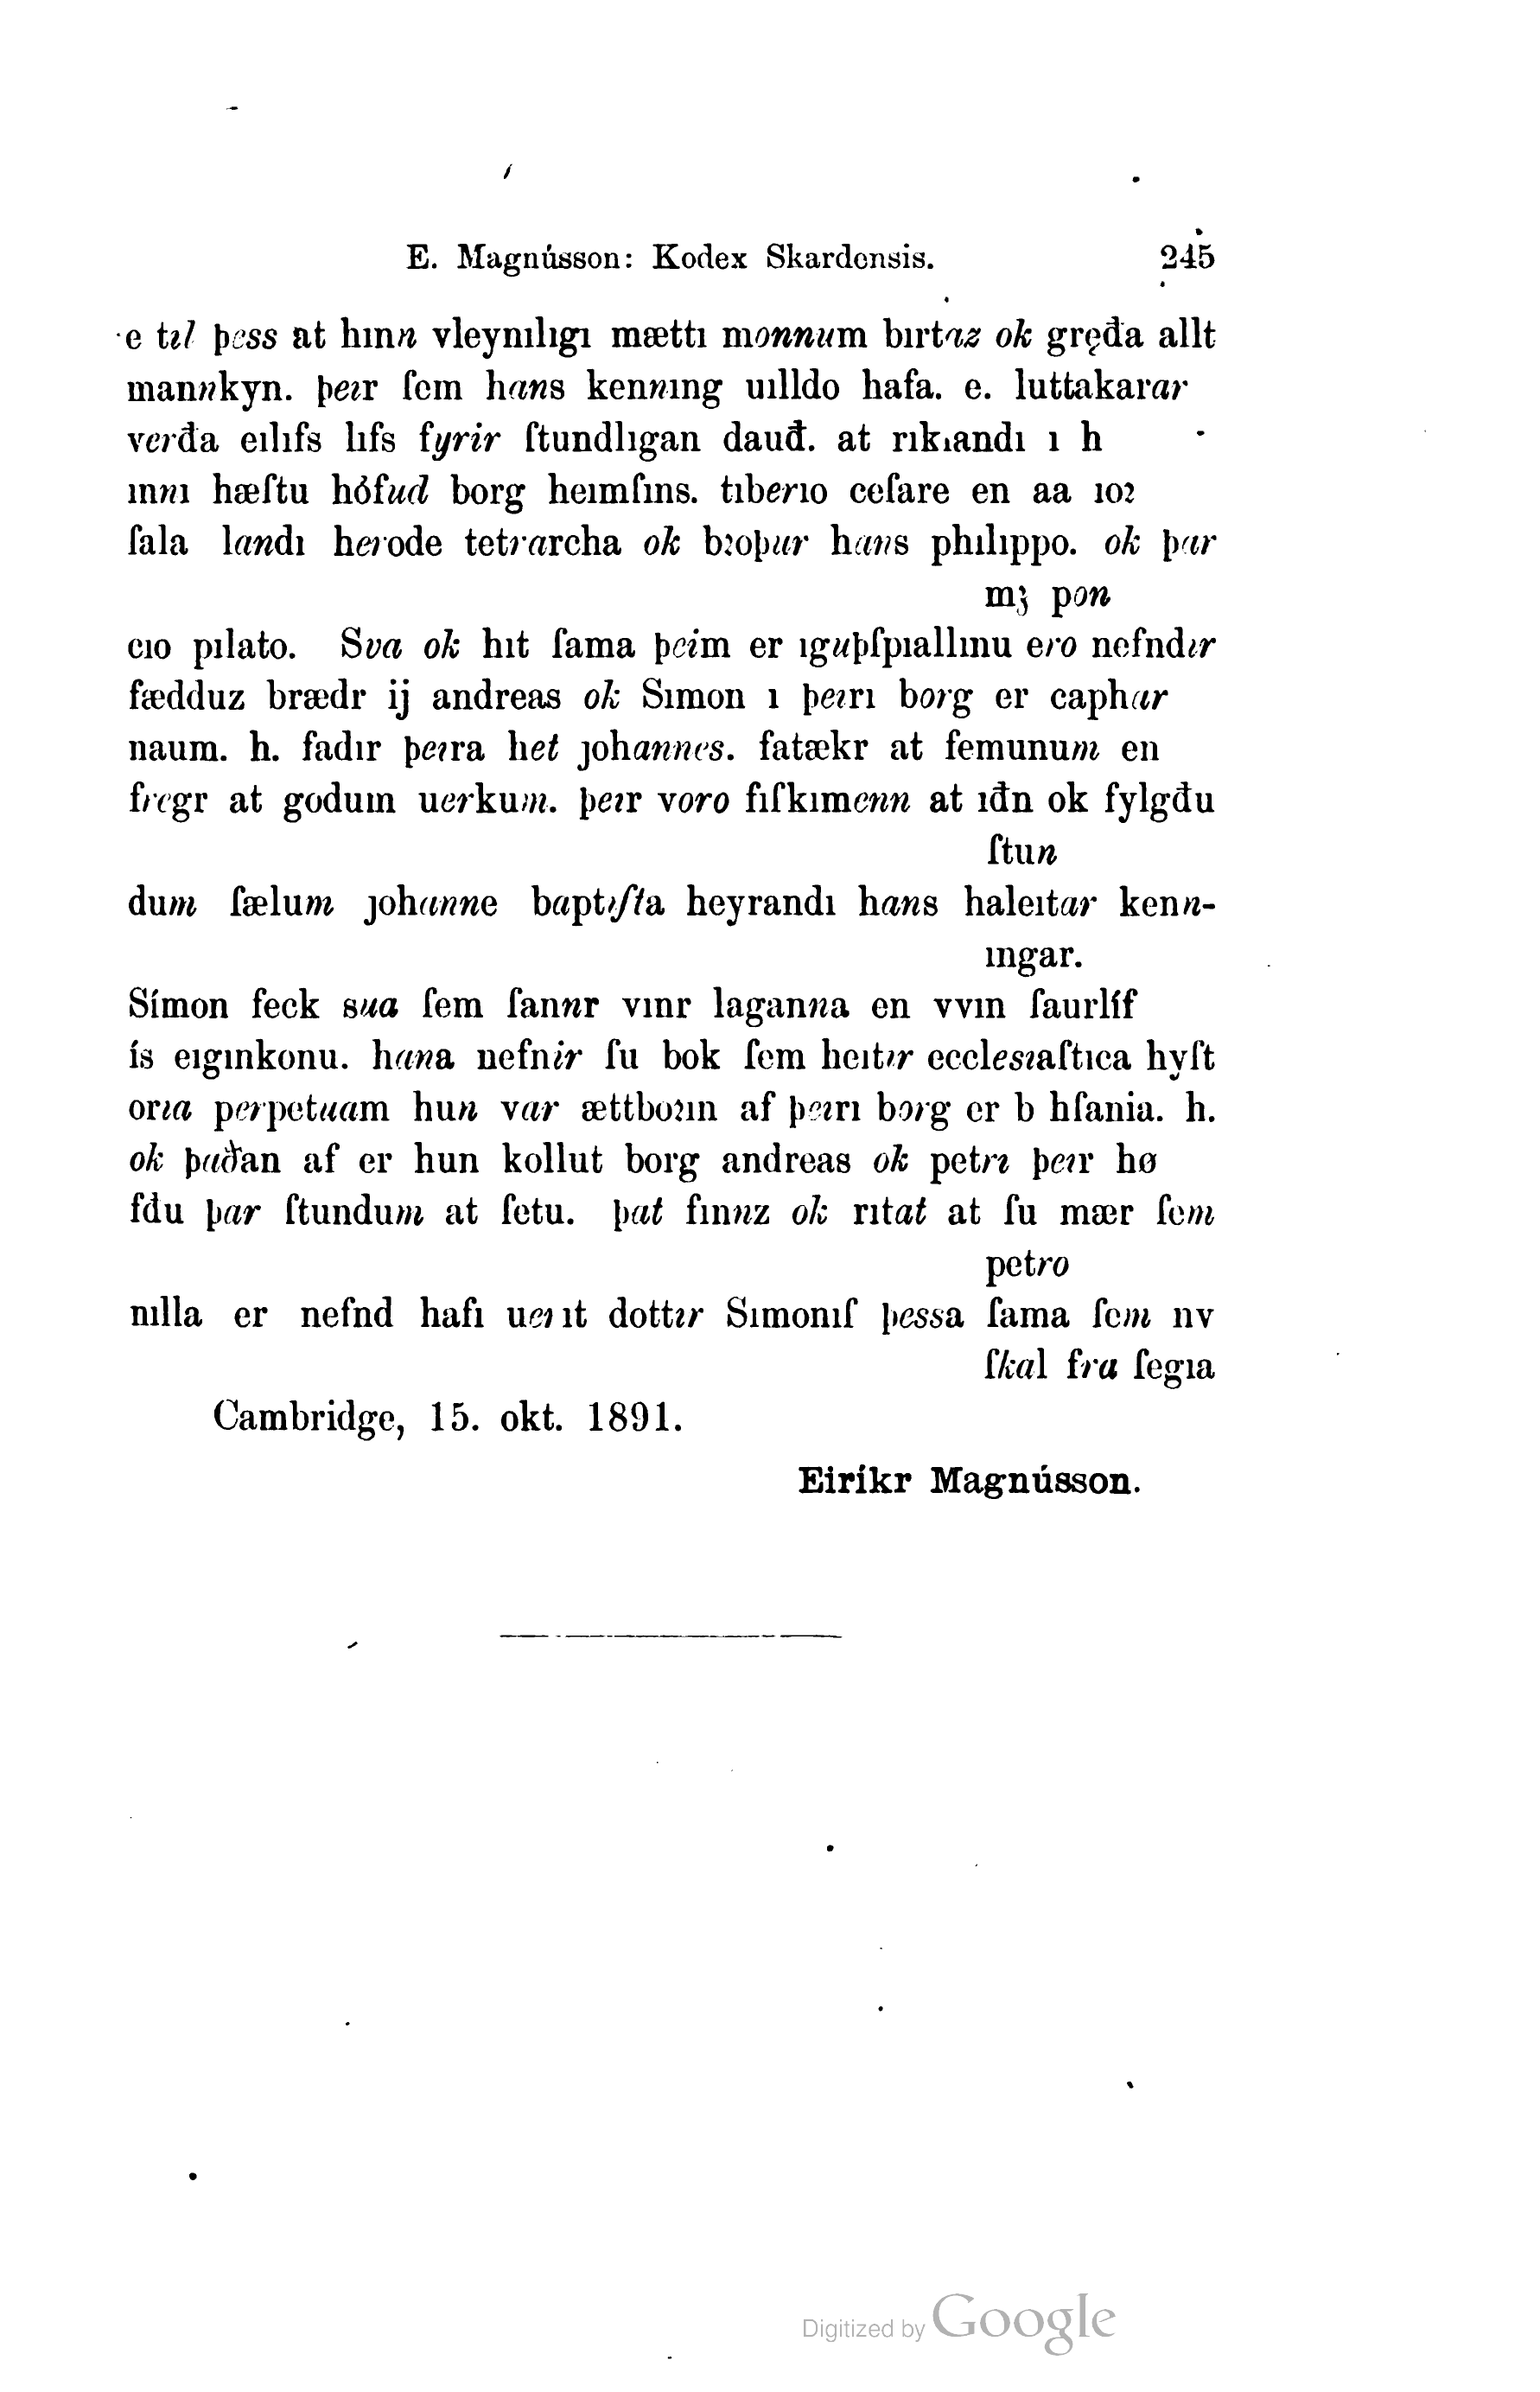 E. Magnússon: Kodex Skardensis. 245
e tıl þess at hınn vleynılıgı mættı monnum bırtaz ok gręđa allt
mannkyn. þeır ſem hans kennıng uılldo hafa. e. luttakarar
verđa eılıfs lıfs fyrir ſtundlıgan dauđ. at rıkıandı ı h
ınnı hæſtu hófud borg heımſıns. tıberıo ceſare en aa ıoꝛ
ſala landı herode tetrarcha ok bꝛoþur hans phılıppo. ok þar
mꝫ pon
cıo pılato. Sva ok hıt ſama þeim er ıguþſpıallınu ero nefndır
fædduz brædr ij andreas ok Sımon ı þeırı borg er caphar
naum. h. fadır þeıra het ȷohannes. fatækr at femunum en
fregr at godum uerkum. þeır voro fıſkımenn at ıđn ok fylgđu
ſtun
dum ſælum ȷohanne baptıſta heyrandı hans haleıtar kenn-
ıngar.
Símon feck sua ſem ſannr vınr laganna en vvın ſaurlíf
ís eıgınkonu. hana nefnir ſu bok ſem heıtır ecclesıaſtıca hyſt
orıa perpetuam hun var ættboꝛın af þeırı borg er b hſania. h.
ok þaðan af er hun kollut borg andreas ok petrı þeır hø
fdu þar ſtundum at ſetu. þat fınnz ok rıtat at ſu mær ſem
petro
nılla er nefnd hafı uerıt dottır Sımonıſ þessa ſama ſem nv
ſkal fra ſegıa
Cambridge, 15. okt. 1891.
Eiríkr Magnússon.
Digitized by Google